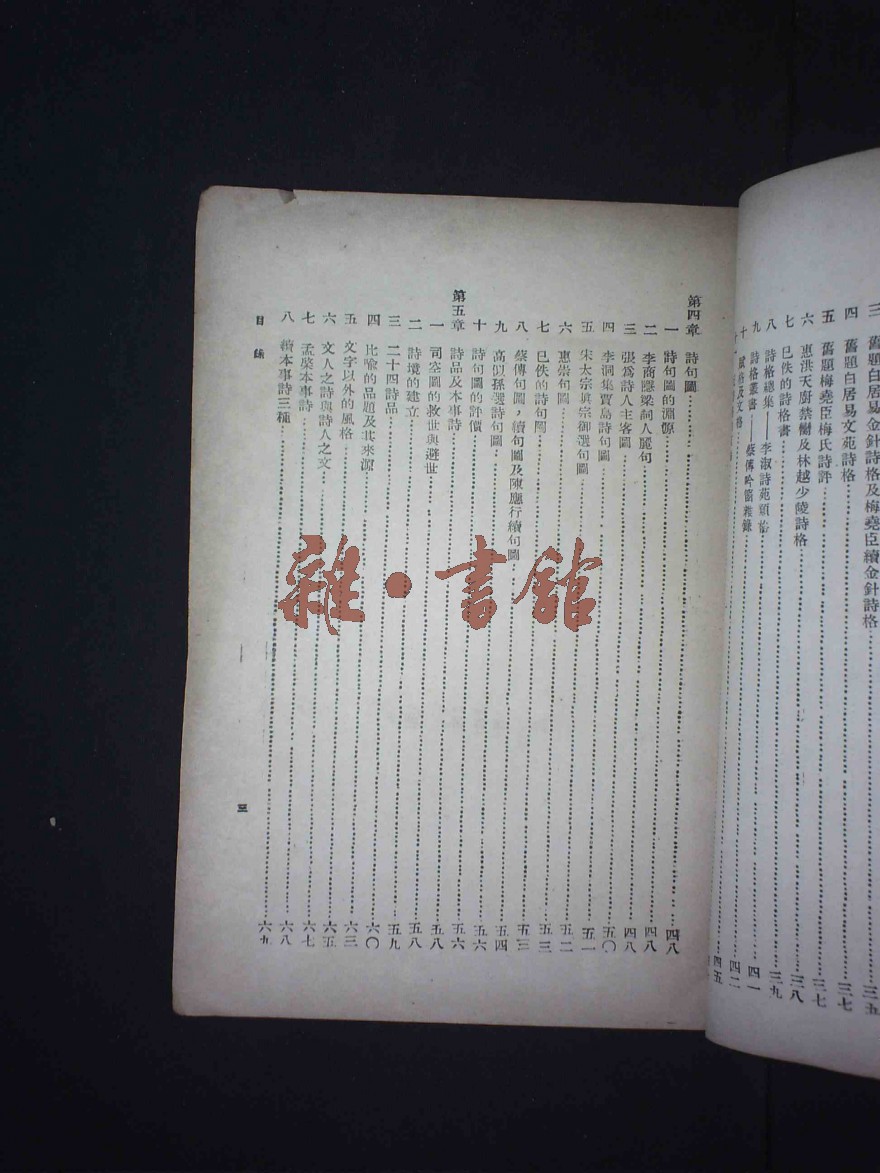 三 舊題白居易金針詩格及梅堯臣續金針詩格……三五
四 舊題白居易文苑詩格……三七
五 舊題梅堯臣梅氏詩評……三七
六 惠洪天廚禁臠及林越少陵詩格……三八
七 已佚的詩格書……三九
八 詩格總集——李淑詩苑類格……四一
九 詩格叢書——蔡傅吟窗雜錄……四二
十 賦格及文格……四五
第四章 詩句圖……四八
一 詩句圖的淵源……四八
二 李商隱梁詞人麗句……四八
三 張爲詩人主客圖……五〇
四 李洞集賈島詩句圖……五一
五 宋太宗眞宗御選句圖……五二
六 惠崇句圖……五三
七 已佚的詩句圖……五三
八 蔡傅句圖,續句圖及陳應行續句圖……五四
九 高似孫選詩句圖……五六
十 詩句圖的評價……五六
第五章 詩品及本事詩……五八
一 司空圖的救世與避世……五八
二 詩境的建立……五九
三 二十四詩品……六〇
四 比喩的品題及其來源……六三
五 文字以外的風格……六五
六 文人之詩與詩人之文……六七
七 孟棨本事詩……六八
八 續本事詩三種……六九
目錄
三
雜·書館